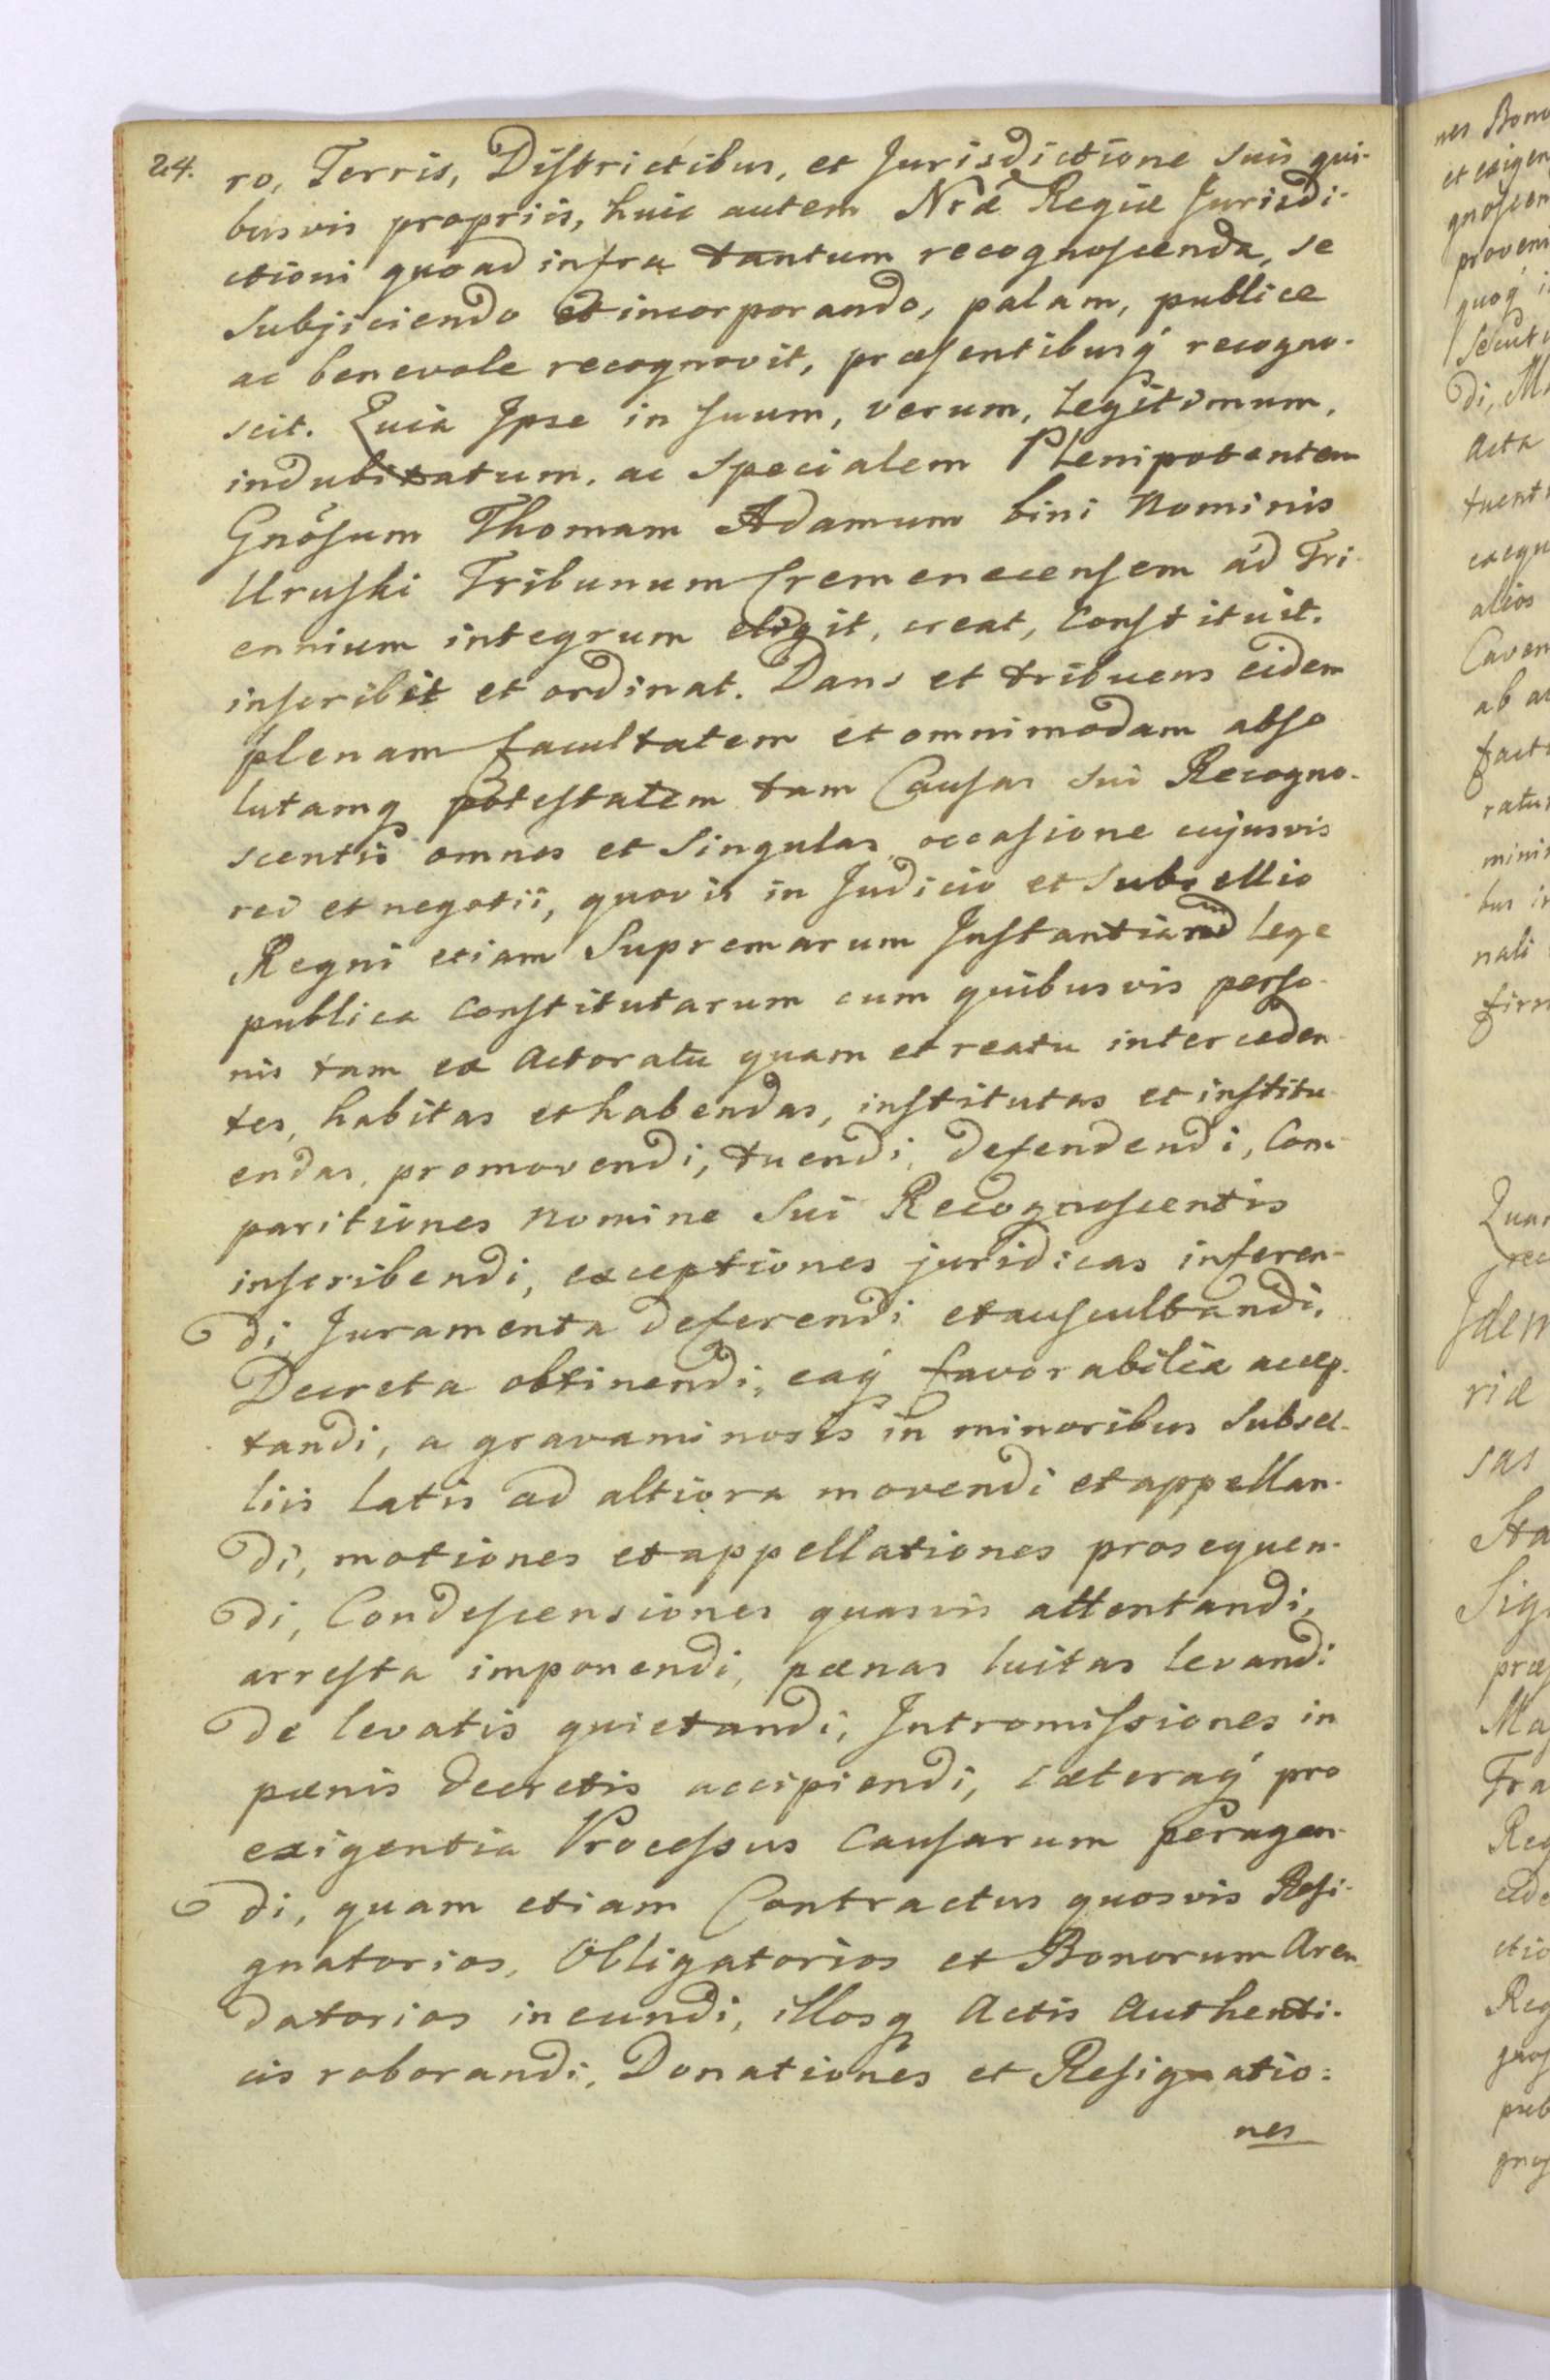 24.
ro, Terris, Districtibus, et Jurisdictione suis qui-
busvis propriis, huic autem Nrã Regiæ Jurisdi-
ctioni quoad infra tantum recognoscenda, se
subjiciendo et incorporando, palam, publice
ac benevole recognovit, præsentibusq́ recogno-
scit. Quia Ipse in suum, verum, legitimum,
indubitatum, ac specialem Plenipotentem
Gnõsum Thomam Adamum bini Nominis
Uruski Tribunum Cremenecensem ad Tri-
ennium integrum eligit, creat, constituit,
inscribit et ordinat. Dans et tribuens eidem
plenam facultatem et omnimodam abso
lutamq potestatem tam Causas sui Recogno-
scentis omnes et singulas occasione cujusvis
rei et negotii, quovis in Judicio et Subsellio
Regni etiam Supremarum Instantiarum lege
publica constitutarum cum quibusvis perso-
nis tam ex Actoratu quam et reatu interceden-
tes, habitas et habendas, institutas et institu-
endas, promovendi, tuendi, defendendi, Com-
paritiones nomine sui Recognoscentis
inscribendi, exceptiones juridicas inferen-
di, Juramenta deferendi et auscultandi,
Decreta obtinendi, eaq́ favorabilia accep-
tandi, a gravaminosis in minoribus Subsel-
liis latis ad altiora movendi et appellan-
di, motiones et appellationes prosequen-
di, Condescensiones quasvis attentandi,
arresta imponendi, pænas luitas levandi
de levatis quietandi, Intromissiones in
pænis decretis accipiendi, cæteraq́ pro
exigentia Processus Causarum peragen-
di, quam etiam Contractus quosvis Resi-
gnatorios, Obligatorios et Bonorum Aren
datorios ineundi, illosq Actis Authenti-
cis roborandi, Donationes et Resignatio:
nes
nes Bono
et exigen
gnoscen
proveni
quoq́ i
di, M
Acta
alios
Caven
ab a
nali
Idem
riæ
sas
Sta
Sig
præs
Ma
Fra
Reg
ctio
Reg